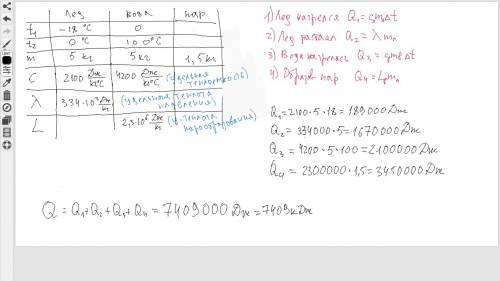 лед вода пар
t₁ -18 °C 0
t₂ 0 °C 100°C
m 5 кг 5 кг 1,5 кг
C 2100 Дж/кг°C 4200 Дж/кг°C (удельная теплоемкость)
λ 334·10³ Дж/кг (удельная теплота плавления)
L 2,3·10⁶ Дж/кг (у. теплота парообразования)
1) Лед нагрелся Q₁=cmΔt
2) Лед растаял Q₂=λm
3) Вода нагрелась Q₃=cmΔt
4) Образов. пар Q₄=Lm
Q₁=2100·5·18=189000Дж
Q₂=334000·5=1670000Дж
Q₃=4200·5·100=2100000Дж
Q₄=2300000·1,5=3450000Дж
Q=Q₁+Q₂+Q₃+Q₄=7409000Дж=7409кДж